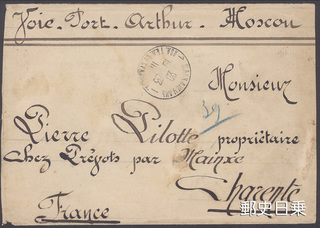 Voie. Port. Arthur. Moscou
Monsieur
Pierre Pilotte propriétaire
Chez Prézots par Mainxe
Charente
France
郵史日乗